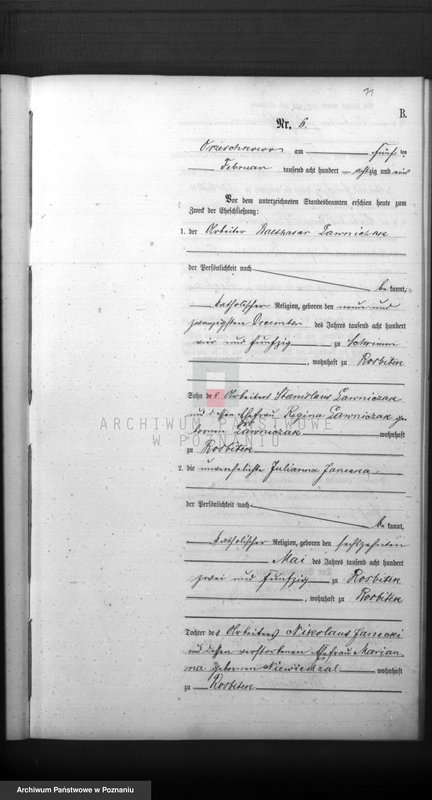 B.
Nr. 6.
am Fünf ten
Februar tausend acht hundert achtzig und eins
Vor dem unterzeichneten Standesbeamten erschien heute zum
Zweck der Eheschließung:
1. der Arbeiter Balthasar Lawniczak
der Persönlichkeit nach
be kannt,
katholischer Religion, geboren den neun und
zwanzigsten December des Jahres tausend acht hundert
vier und fünfzig zu Schrimm
, wohnhaft zu Rosbitek
Sohn des Arbeiters Stanislaus Lawniczak
und dessen Ehefrau Regina Lawniczak ge-
borenen Lawniczak wohnhaft
zu Rosbitek
ARCHIWUM PAŃSTWOWE
W POZNANIU
2. die unverehelichte Julianna Janecka
der Persönlichkeit nach
be kannt,
katholischer Religion, geboren den sechszehnten
Mai des Jahres tausend acht hundert
zwei und fünfzig zu Rosbitek
, wohnhaft zu Rosbitek
Tochter des Arbeiters Nikolaus Janecki
und dessen verstorbenen Ehefrau Marian-
na geborenen Niewiedzal wohnhaft
zu Rosbitek
Archiwum Państwowe w Poznaniu